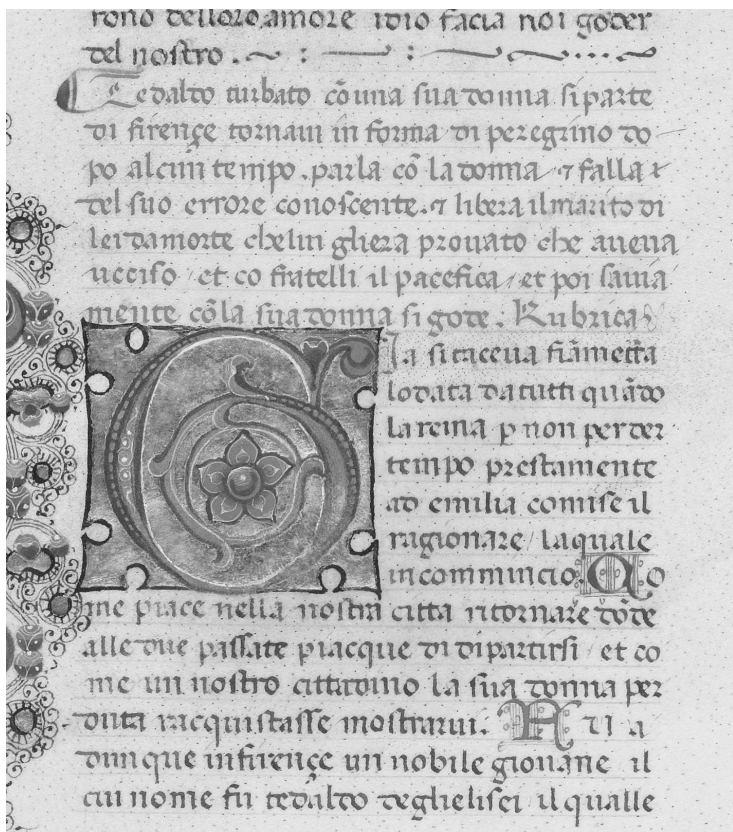 rono delloro amore idio facia noi goder
del nostro .
Tedaldo turbato cõ una sua donna si parte
di firençe tornaui in forma di peregrino do
po alcun tempo . parla cõ la donna ⁊ falla
del suo errore conoscente . ⁊ libera il marito di
lei da morte che lui gliera prouato che aueua
ucciso et co fratelli il pacefica / et poi sauia
mente cõ la sua donna si gode . Rubrica
Gia si taceua fiãmetta
lodata da tutti quãdo
la reina p non perder
tempo prestamente
ad emilia comise il
ragionare / laquale
incomminciò . A
me piace nella nostra citta ritornare dõde
alle due passate piacque di dipartirsi / et co
me un nostro cittadino la sua donna per
duta racquistasse mostrarui .
dunque in firençe un nobile giouane il
cui nome fu tedaldo deglielisei il qualle